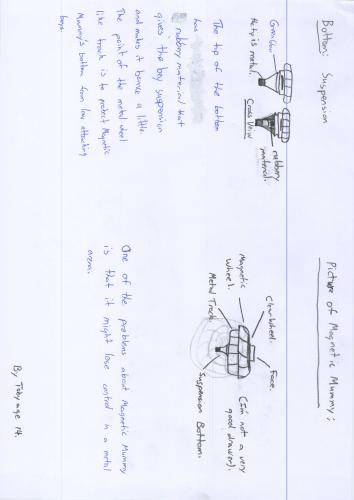 Bottom: Suspension
Green/blue
Note is metal.
Cross View
rubbery
material.
The tip of the bottom
has
rubbery material that
gives the bey suspension
and makes it bounce a little.
The point of the metal wheel
like track is to protect Magnetic
Mummy's bottom from low attacking
beys.
Picture of Magnetic Mummy:
Clear wheel.
Face.
Magnetic
Wheel.
Metal Track
Suspension Bottom.
(I'm not a very
good drawer).
One of the problems about Magnetic Mummy
is that it might lose control in a metal
arena.
By Toby age 14.